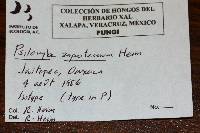 INSTITUTO DE
ECOLOGIA, A.C.
COLECCIÓN DE HONGOS DEL
HERBARIO XAL
XALAPA, VERACRUZ, MEXICO
FUNGI
Psilocybe zapotecorum Heim
Juxtepec, Oaxaca
4 août 1956
Isotype (type in P)
No.
Col. R. Heim
Det. R. Heim